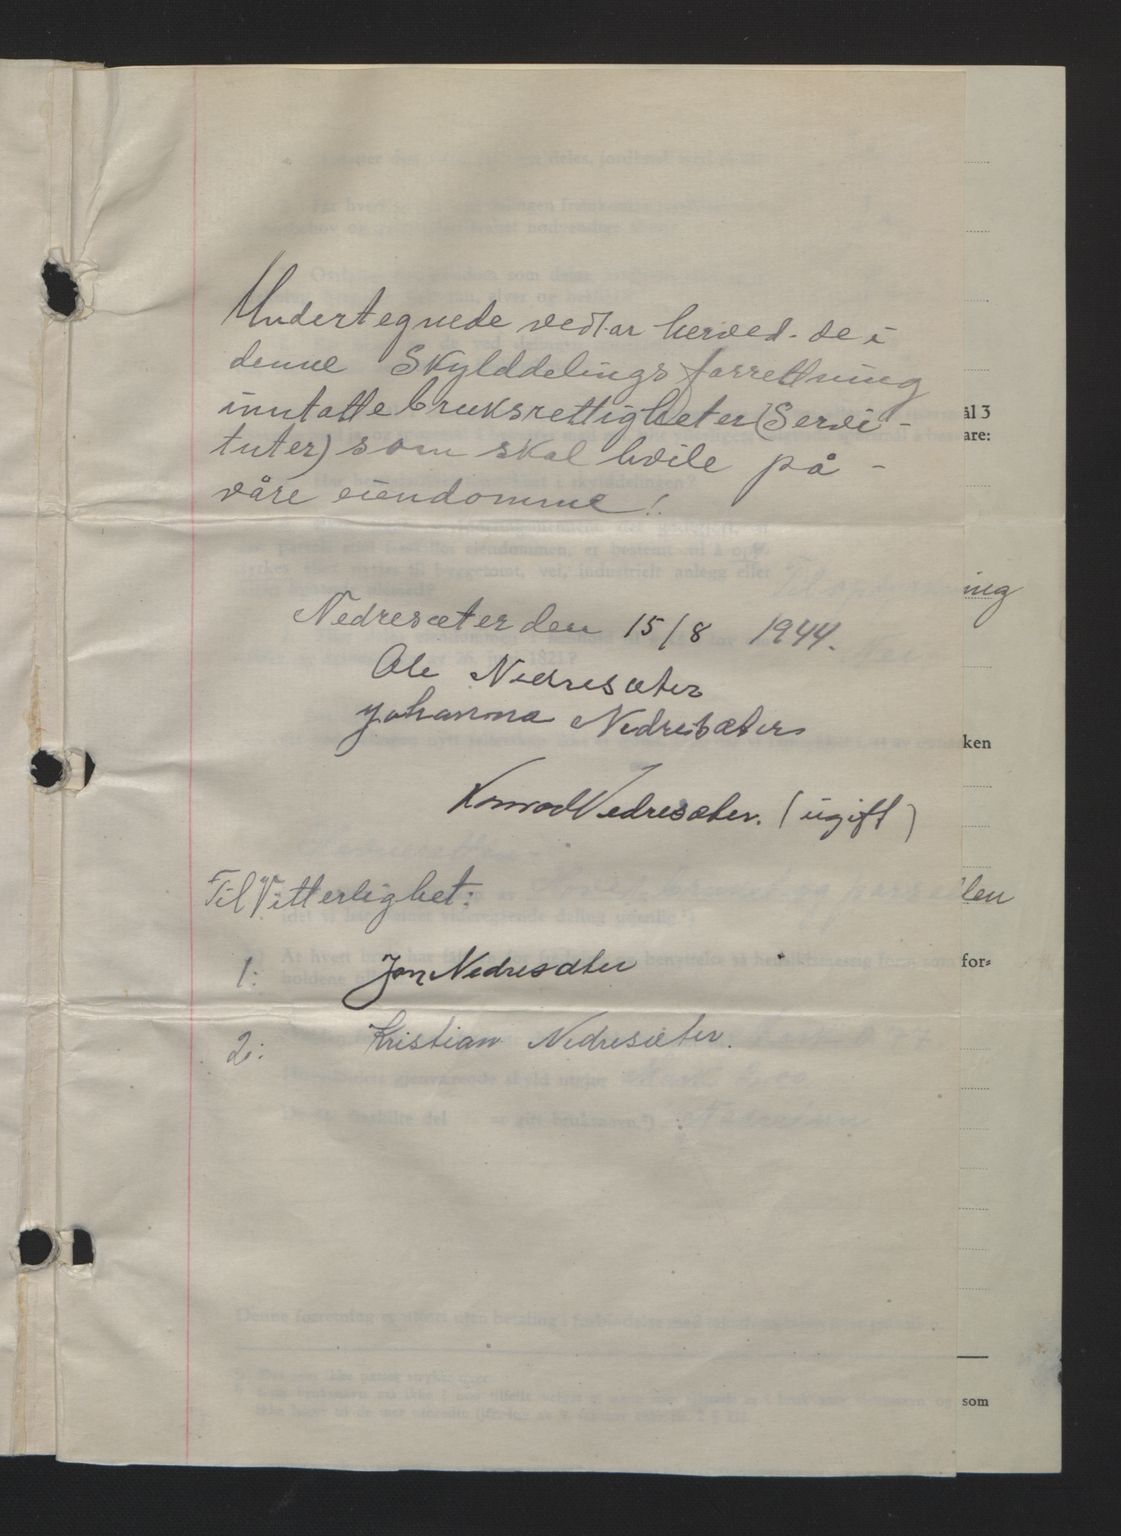 Undertegnede vedtar herved de i
denne Skylddelingsforrettning
inntatte bruksrettigheter (Servi-
tuter) som skal hvile på -
våre eiendomme!
Nedresæter den 15/8 1944.
Ole Nedresæter
Johanna Nedresæter
Konrad Nedresæter. (ugift)
Til Vitterlighet:
1: Jon Nedresæter
2: Kristian Nedresæter.
ål 3
are:
ning
ken
len
for=
som